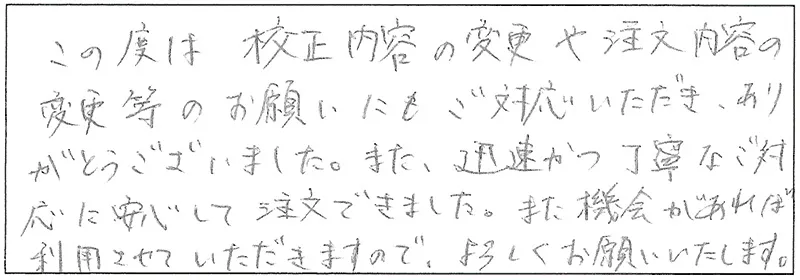 この度は 校正内容の変更や注文内容の
変更等のお願いにもご対応いただき、あり
がとうございました。また、迅速かつ丁寧なご対
応に安心して注文できました。また機会があれば
利用させていただきますので、よろしくお願いいたします。